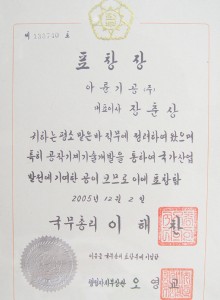 제 호
표 창 장
아륜기공 (주)
대표이사 장 춘 상
귀하는 평소 맡은바 직무에 정려하여 왔으며
특히 공작기계기술개발을 통하여 국가산업
발전에 기여한 공이 크므로 이에 표창함
2005년 12월 2일
국무총리 이 해 찬
이 증을 국무총리 표창부에 기입함
행정자치부장관 오 영 교